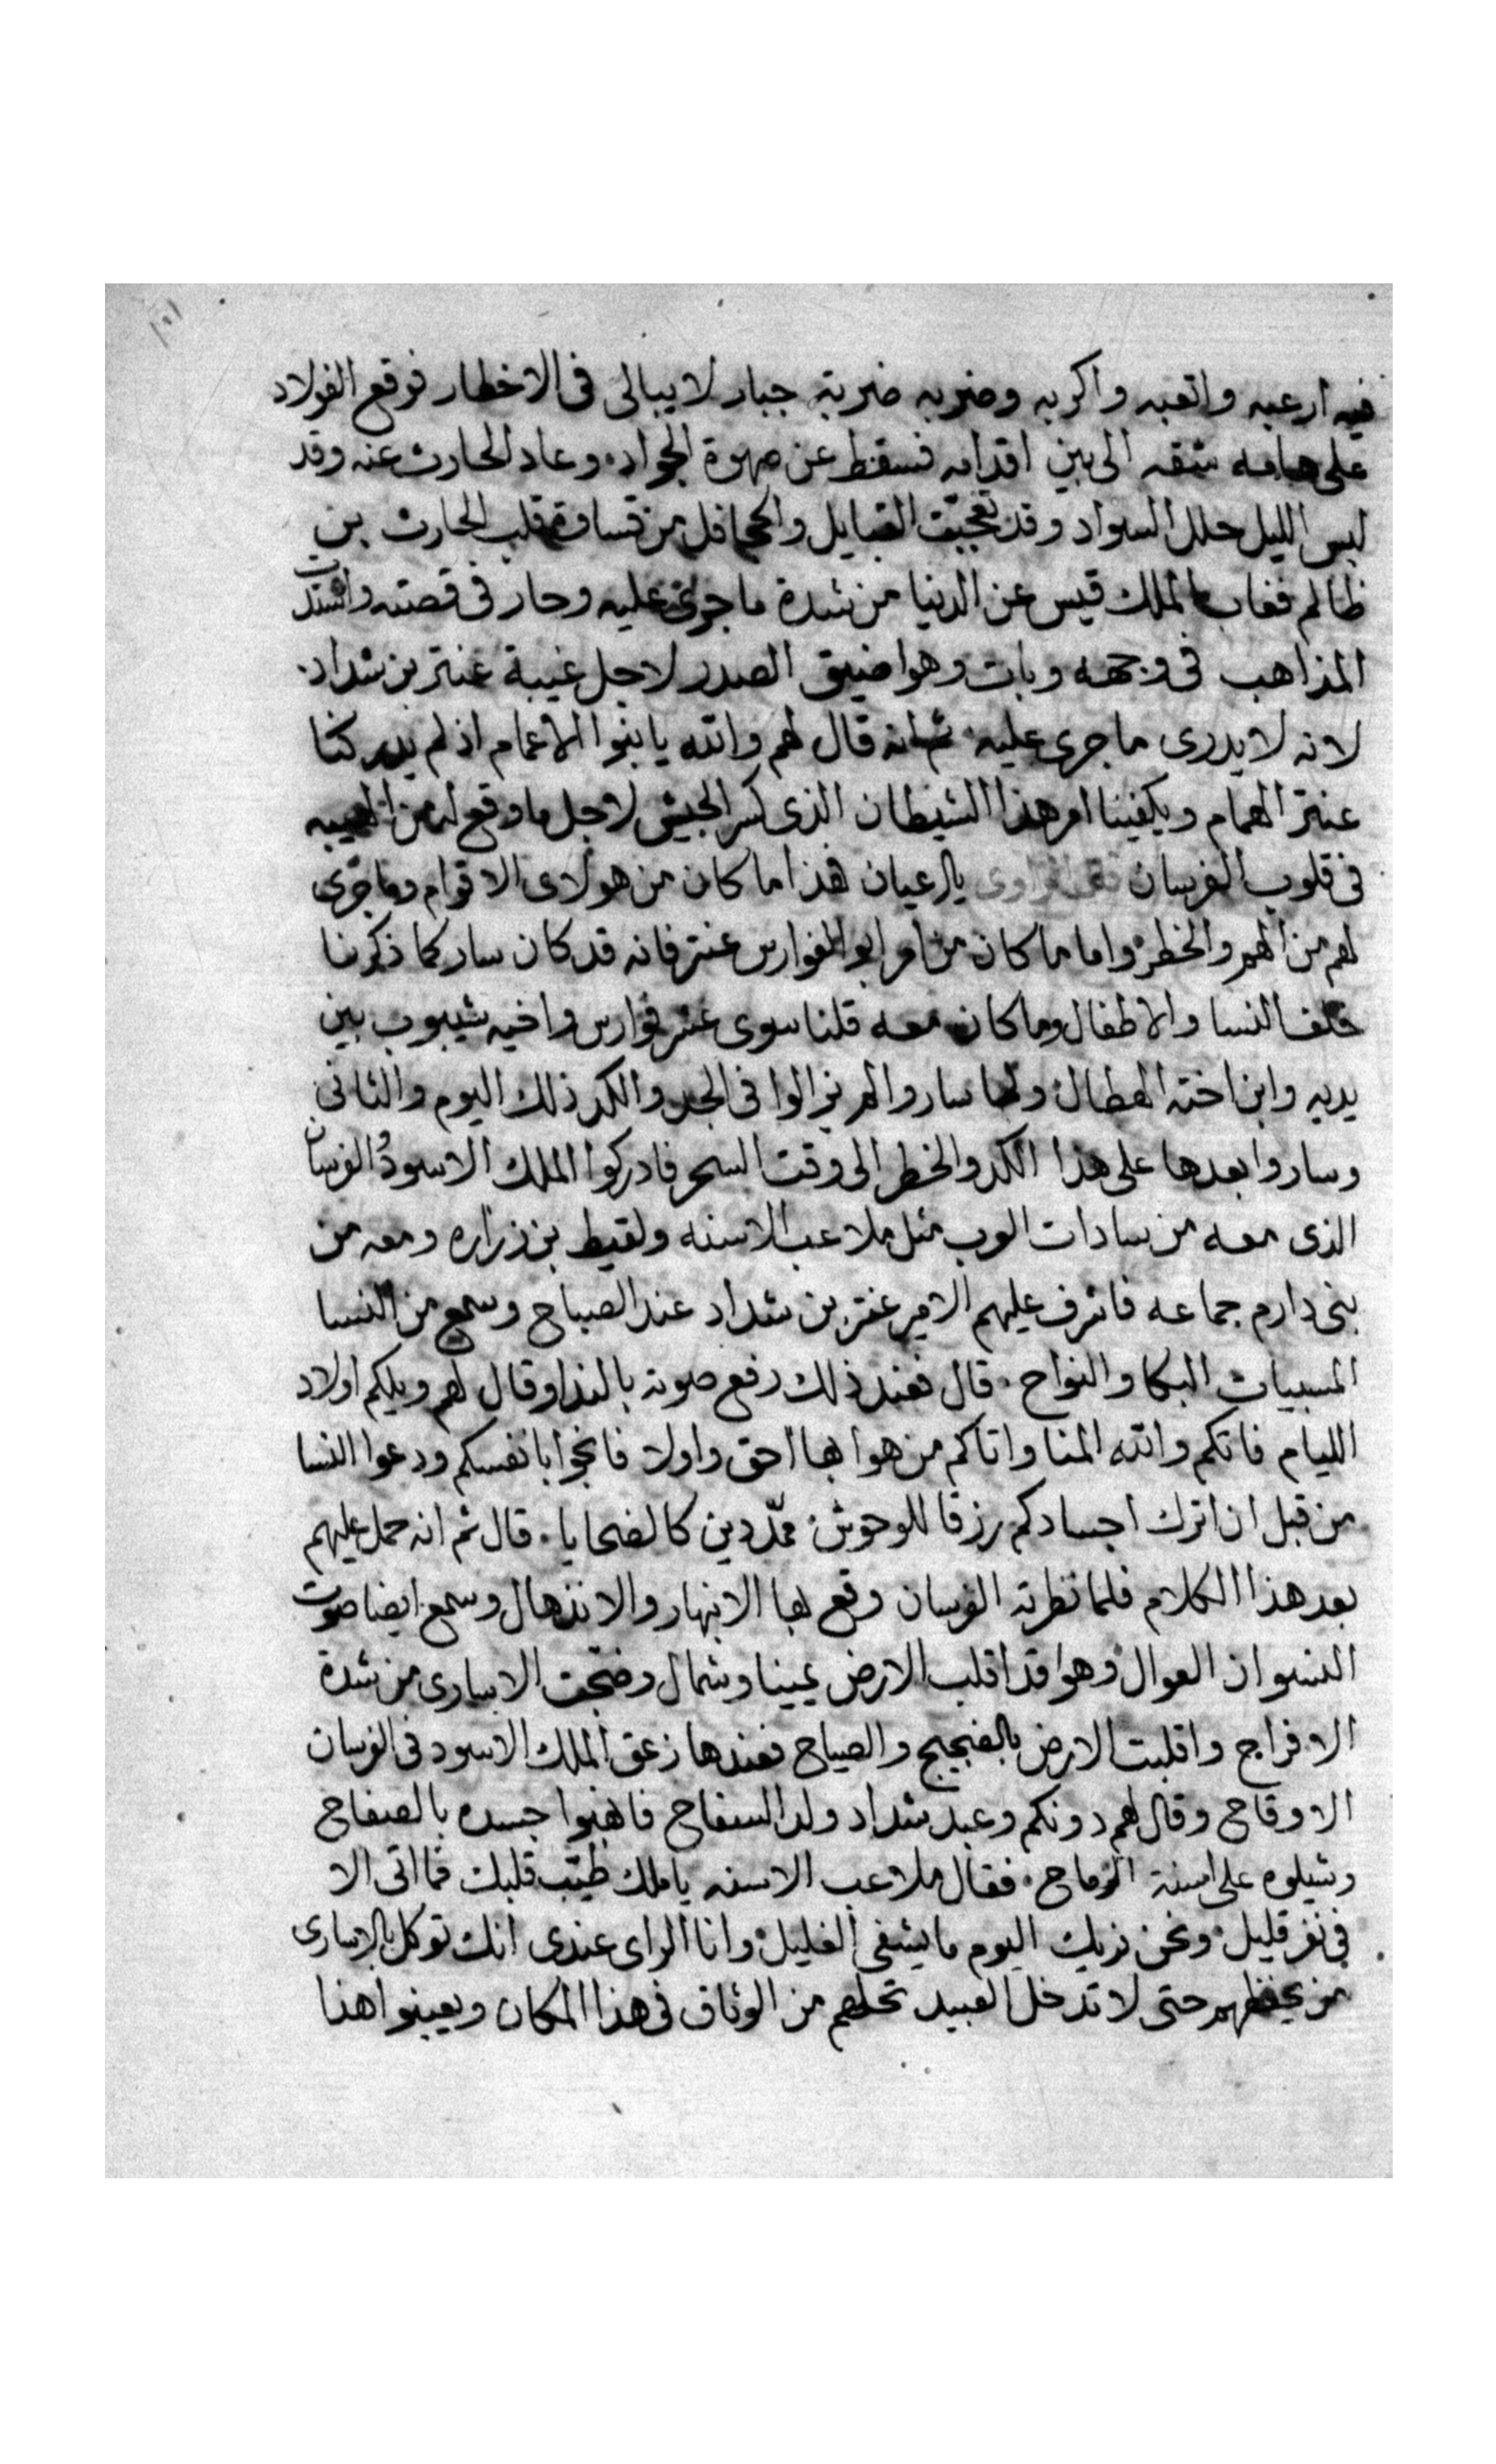 ١٠١
فيه ارعبه واتعبه واكربه وضربه ضربة جبار لا يبالى فى الاخطار فوقع الفولاد
على هامه شقه الى بين اقدامه فسقط عن صهوة الجواد وعاد الحارث عنه وقد
لبس الليل حلل السواد وقد تعجبت القبايل والحجافل من قساوة قلب الحارث بن
ظالم فغاب الملك قيس عن الدنيا من شدة ما جرى عليه وحار فى قصته واشتدت
المذاهب فى وجهه وبات وهوا ضيق الصدر لاجل غيبة عنتر بن شداد
لانه لا يدرى ما جرى عليه ثم انه قال لهم والله يا بنوا الاعمام اذ لم يدركنا
عنتر الهمام ويكفينا امر هذا الشيطان الذى كسر الجيش لاجل ما وقع له من الهيبه
فى قلوب الفرسان يا رعيان هذا ما كان من هولاى الاقوام وما جرى
لهم من الهم والخطر واما ما كان من امر ابو الفوارس عنتر فانه قد كان سار كما ذكرنا
خلف النسا والاطفال وما كان معه قلنا سوى عشر فوارس واخيه شيبوب بين
يديه وابن اخته الهطال ولما ساروا لم يزالوا فى الجد والكد ذلك اليوم والثانى
وساروا بعدها على هذا الكد والخطر الى وقت السحر فادركوا الملك الاسود والفرسان
الذى معه من سادات العرب مثل ملاعب الاسنه ولقيط بن زراره ومعه من
بنى دارم جماعه فاشرف عليهم الامير عنتر بن شداد عند الصباح وسمع من النسا
المسبيات البكا والنواح قال فعند ذلك رفع صوته بالندا وقال لهم ويلكم اولاد
الليام فاتكم والله المنا واتاكم من هوا بها احق واولا فانجوا بانفسكم ودعوا النسا
من قبل ان اترك اجسادكم رزقا للوحوش ممددين كالضحايا قال ثم انه حمل عليهم
بعد هذا الكلام فلما نظرته الفرسان وقع بها الانبهار والانذهال وسمع ايضا صوت
النسوان العوال وهوا قد اقلب الارض يمينا وشمال وضجت الاسارى من شدة
الافراج واقلبت الارض بالضجيج والصياح فعندها زعق الملك الاسود فى الفرسان
الاوقاح وقال لهم دونكم وعبد شداد ولد السفاح فانهبوا جسده بالصفاح
وشيلوه على اسنة الرماح فقال ملاعب الاسنه يا ملك طيب قلبك فما اتى الا
فى نفر قليل ونحن نريك اليوم ما يشفى الغليل وانا الراى عندى انك توكل بالاسارى
من يحفظهم حتى لا تدخل العبيد تحلهم من الوثاق فى هذا المكان ويعينوا هذا